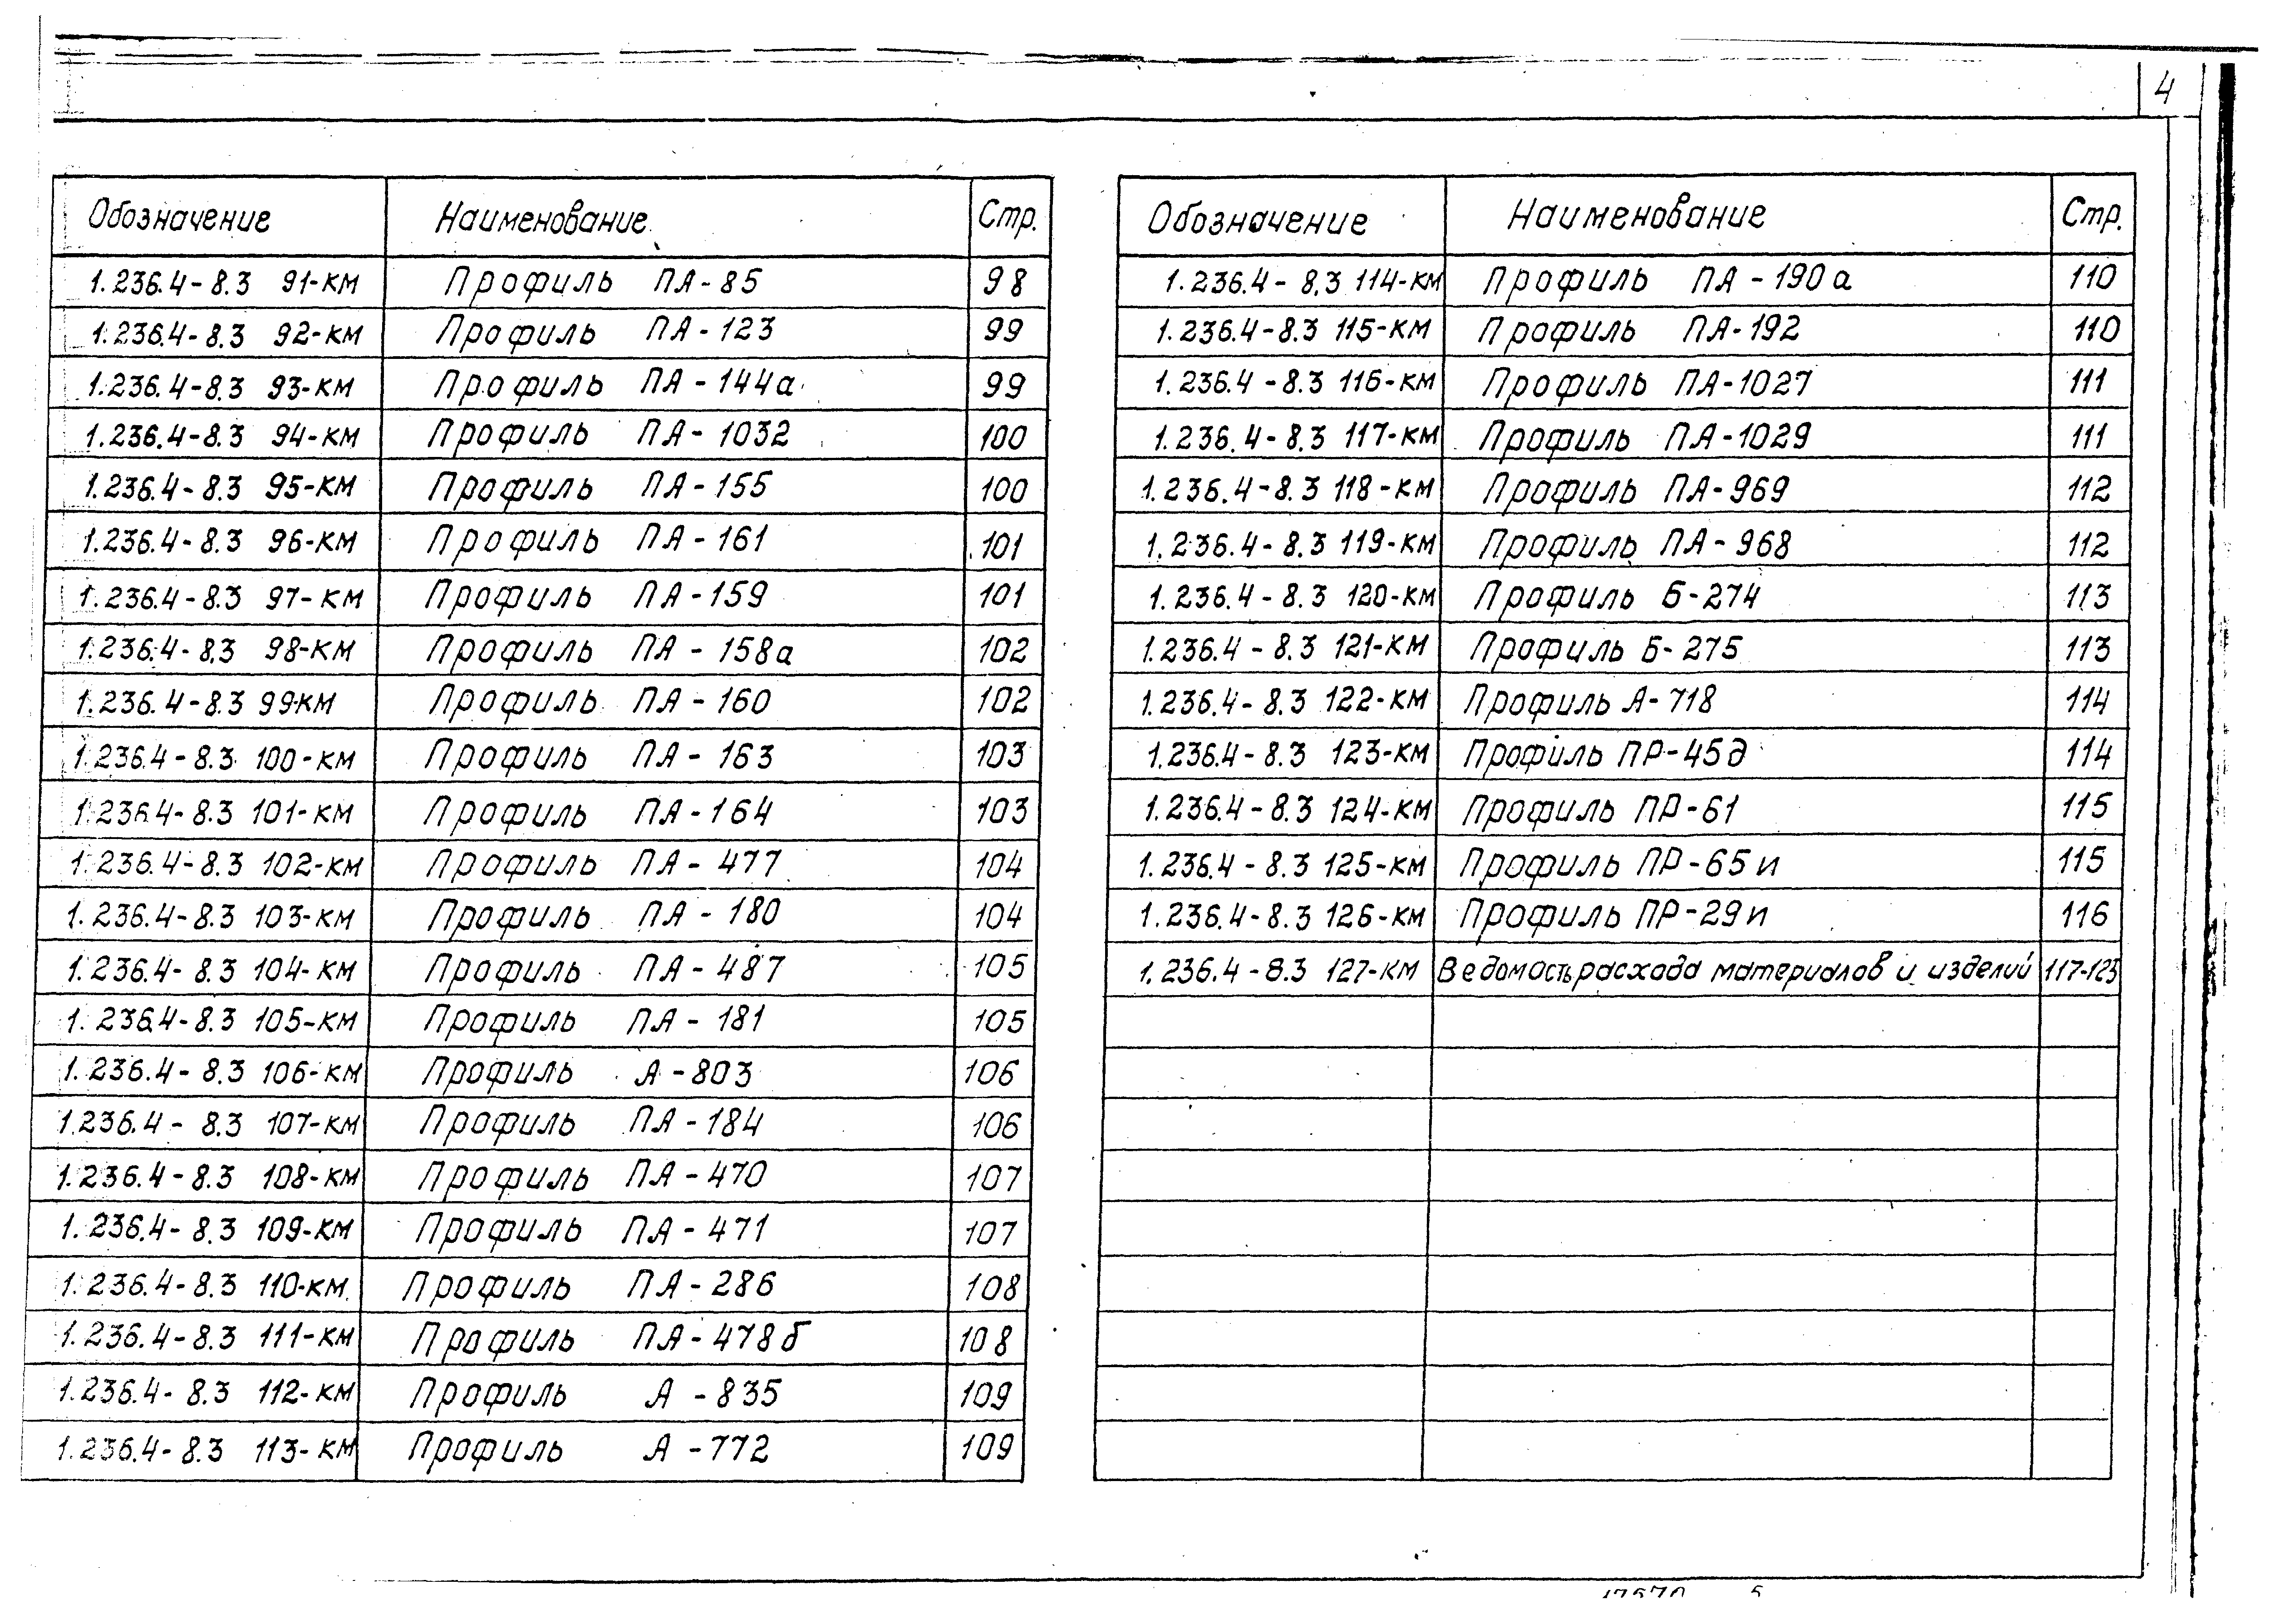 4
Обозначение Наименование Стр.
1.236.4-8.3 91-КМ Профиль ПА-85 98
1.236.4-8.3 92-КМ Профиль ПА-123 99
1.236.4-8.3 93-КМ Профиль ПА-144а 99
1.236.4-8.3 94-КМ Профиль ПА-1032 100
1.236.4-8.3 95-КМ Профиль ПА-155 100
1.236.4-8.3 96-КМ Профиль ПА-161 101
1.236.4-8.3 97-КМ Профиль ПА-159 101
1.236.4-8.3 98-КМ Профиль ПА-158а 102
1.236.4-8.3 99-КМ Профиль ПА-160 102
1.236.4-8.3 100-КМ Профиль ПА-163 103
1.236.4-8.3 101-КМ Профиль ПА-164 103
1.236.4-8.3 102-КМ Профиль ПА-477 104
1.236.4-8.3 103-КМ Профиль ПА-180 104
1.236.4-8.3 104-КМ Профиль ПА-487 105
1.236.4-8.3 105-КМ Профиль ПА-181 105
1.236.4-8.3 106-КМ Профиль А-803 106
1.236.4-8.3 107-КМ Профиль ПА-184 106
1.236.4-8.3 108-КМ Профиль ПА-470 107
1.236.4-8.3 109-КМ Профиль ПА-471 107
1.236.4-8.3 110-КМ Профиль ПА-286 108
1.236.4-8.3 111-КМ Профиль ПА-478б 108
1.236.4-8.3 112-КМ Профиль А-835 109
1.236.4-8.3 113-КМ Профиль А-772 109
Обозначение Наименование Стр.
1.236.4-8.3 114-КМ Профиль ПА-190а 110
1.236.4-8.3 115-КМ Профиль ПА-192 110
1.236.4-8.3 116-КМ Профиль ПА-1027 111
1.236.4-8.3 117-КМ Профиль ПА-1029 111
1.236.4-8.3 118-КМ Профиль ПА-969 112
1.236.4-8.3 119-КМ Профиль ПА-968 112
1.236.4-8.3 120-КМ Профиль Б-274 113
1.236.4-8.3 121-КМ Профиль Б-275 113
1.236.4-8.3 122-КМ Профиль А-718 114
1.236.4-8.3 123-КМ Профиль ПР-45д 114
1.236.4-8.3 124-КМ Профиль ПР-61 115
1.236.4-8.3 125-КМ Профиль ПР-65и 115
1.236.4-8.3 126-КМ Профиль ПР-29и 116
1.236.4-8.3 127-КМ Ведомость расхода материалов и изделий 117-123